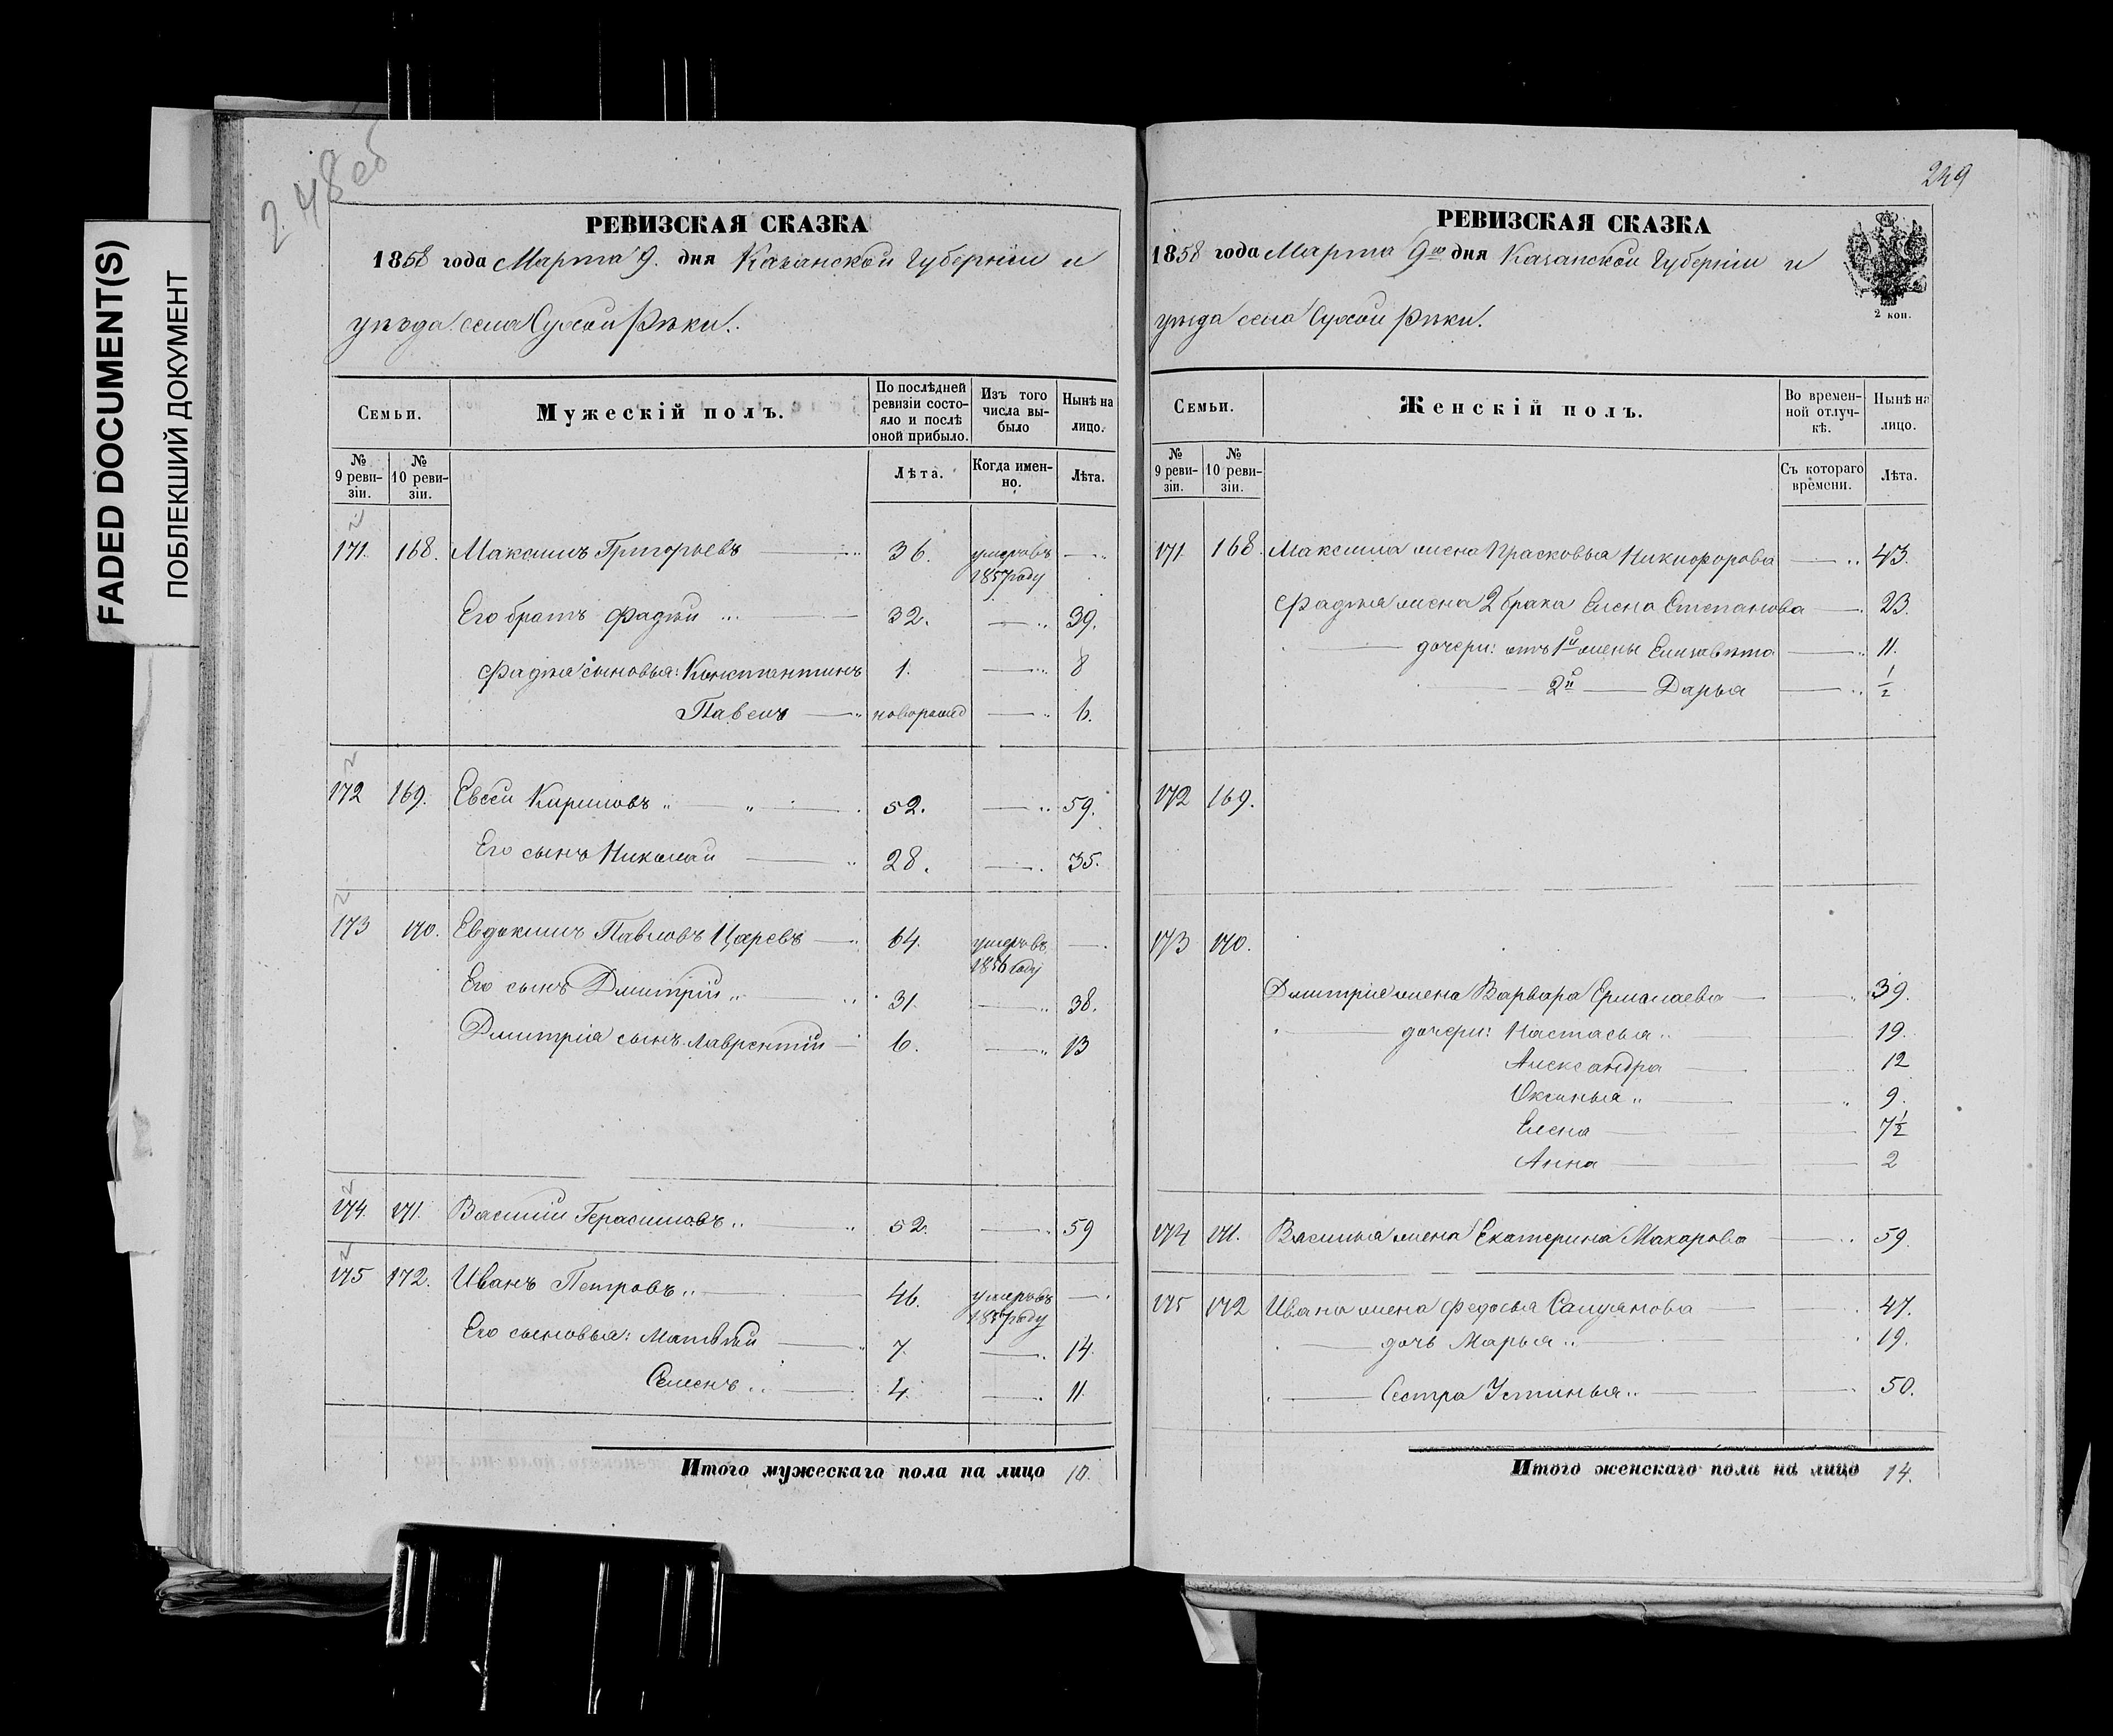 FADED DOCUMENT(S)
ПОБЛЕКШИЙ ДОКУМЕНТ
248об
РЕВИЗСКАЯ СКАЗКА
1858 года Марта 9. дня Казанской Губерніи и
уѣзда села Сухой Рѣки.
Семьи.
Мужескій полъ.
По послѣдней ревизіи состояло и послѣ оной прибыло.
Изъ того числа выбыло
Нынѣ на лицо.
№ 9 ревизіи.
№ 10 ревизіи.
Лѣта.
Когда именно.
Лѣта.
171. 168. Максимъ Григорьевъ 36. умеръ въ 1857 году
Его братъ Фадѣй 32. 39.
Фадѣя сыновья: Константинъ 1. 8
Павелъ новорожд 6.
172 169. Евсей Кириловъ 52. 59.
Его сынъ Николай 28. 35.
173 170. Евдокимъ Павловъ Царевъ 64. умеръ въ 1856 году
Его сынъ Дмитрій 31. 38.
Дмитрія сынъ Лаврентій 6. 13
174. 171. Василій Герасимовъ 52. 59
175 172. Иванъ Петровъ 46. умеръ въ 1857 году
Его сыновья: Матвѣй 7. 14.
Семенъ 4. 11.
Итого мужескаго пола на лицо 10.
249
РЕВИЗСКАЯ СКАЗКА
1858 года Марта 9го дня Казанской Губерніи и
уѣзда села Сухой Рѣки.
2 коп.
Семьи.
Женскій полъ.
Во временной отлучкѣ.
Нынѣ на лицо.
№ 9 ревизіи.
№ 10 ревизіи.
Съ котораго времени.
Лѣта.
171 168. Максима жена Прасковья Никифорова 43.
Фадѣя жена 2 брака Елена Степанова 23.
дочери: отъ 1й жены Елизавѣта 11.
2й Дарья ½
172 169.
173 170.
Дмитрія жена Варвара Ермолаева 39.
дочери: Настасья 19.
Александра 12
Оксинья 9.
Елена 7½
Анна 2
174 171. Василья жена Екатерина Макарова 59.
175 172 Ивана жена Федосья Самуянова 47.
дочь Марья 19.
Сестра Устинья 50.
Итого женскаго пола на лицо 14.